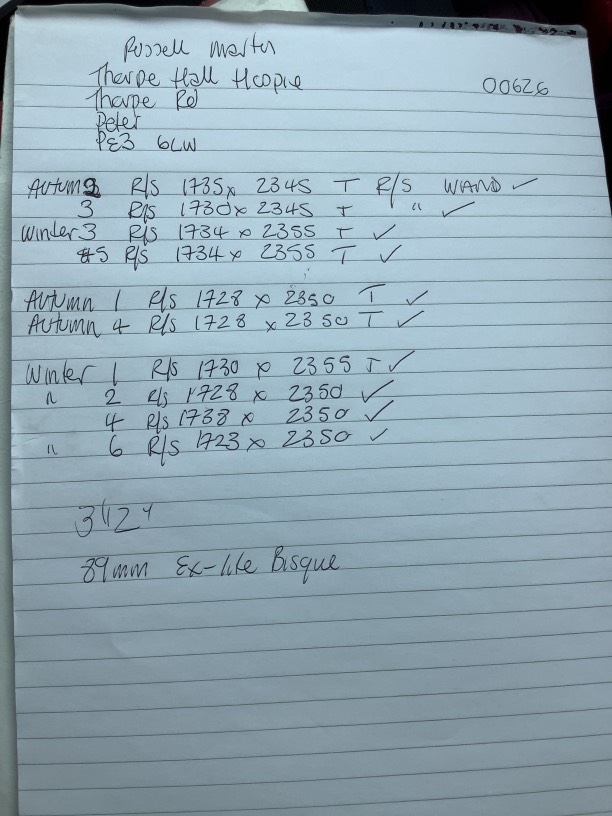 Russell Martin
Thorpe Hall Hospice
00626
Thorpe Rd
Peter
PE3 6LW
Autumn 2 R/S 1735 x 2345 T R/S WAND ✓
3 R/S 1730 x 2345 T " ✓
Winter 3 R/S 1734 x 2355 T ✓
5 R/S 1734 x 2355 T ✓
Autumn 1 R/S 1728 x 2350 T ✓
Autumn 4 R/S 1728 x 2350 T ✓
Winter 1 R/S 1730 x 2355 T ✓
" 2 R/S 1728 x 2350 ✓
4 R/S 1738 x 2350 ✓
" 6 R/S 1723 x 2350 ✓
89mm Ex-lite Bisque